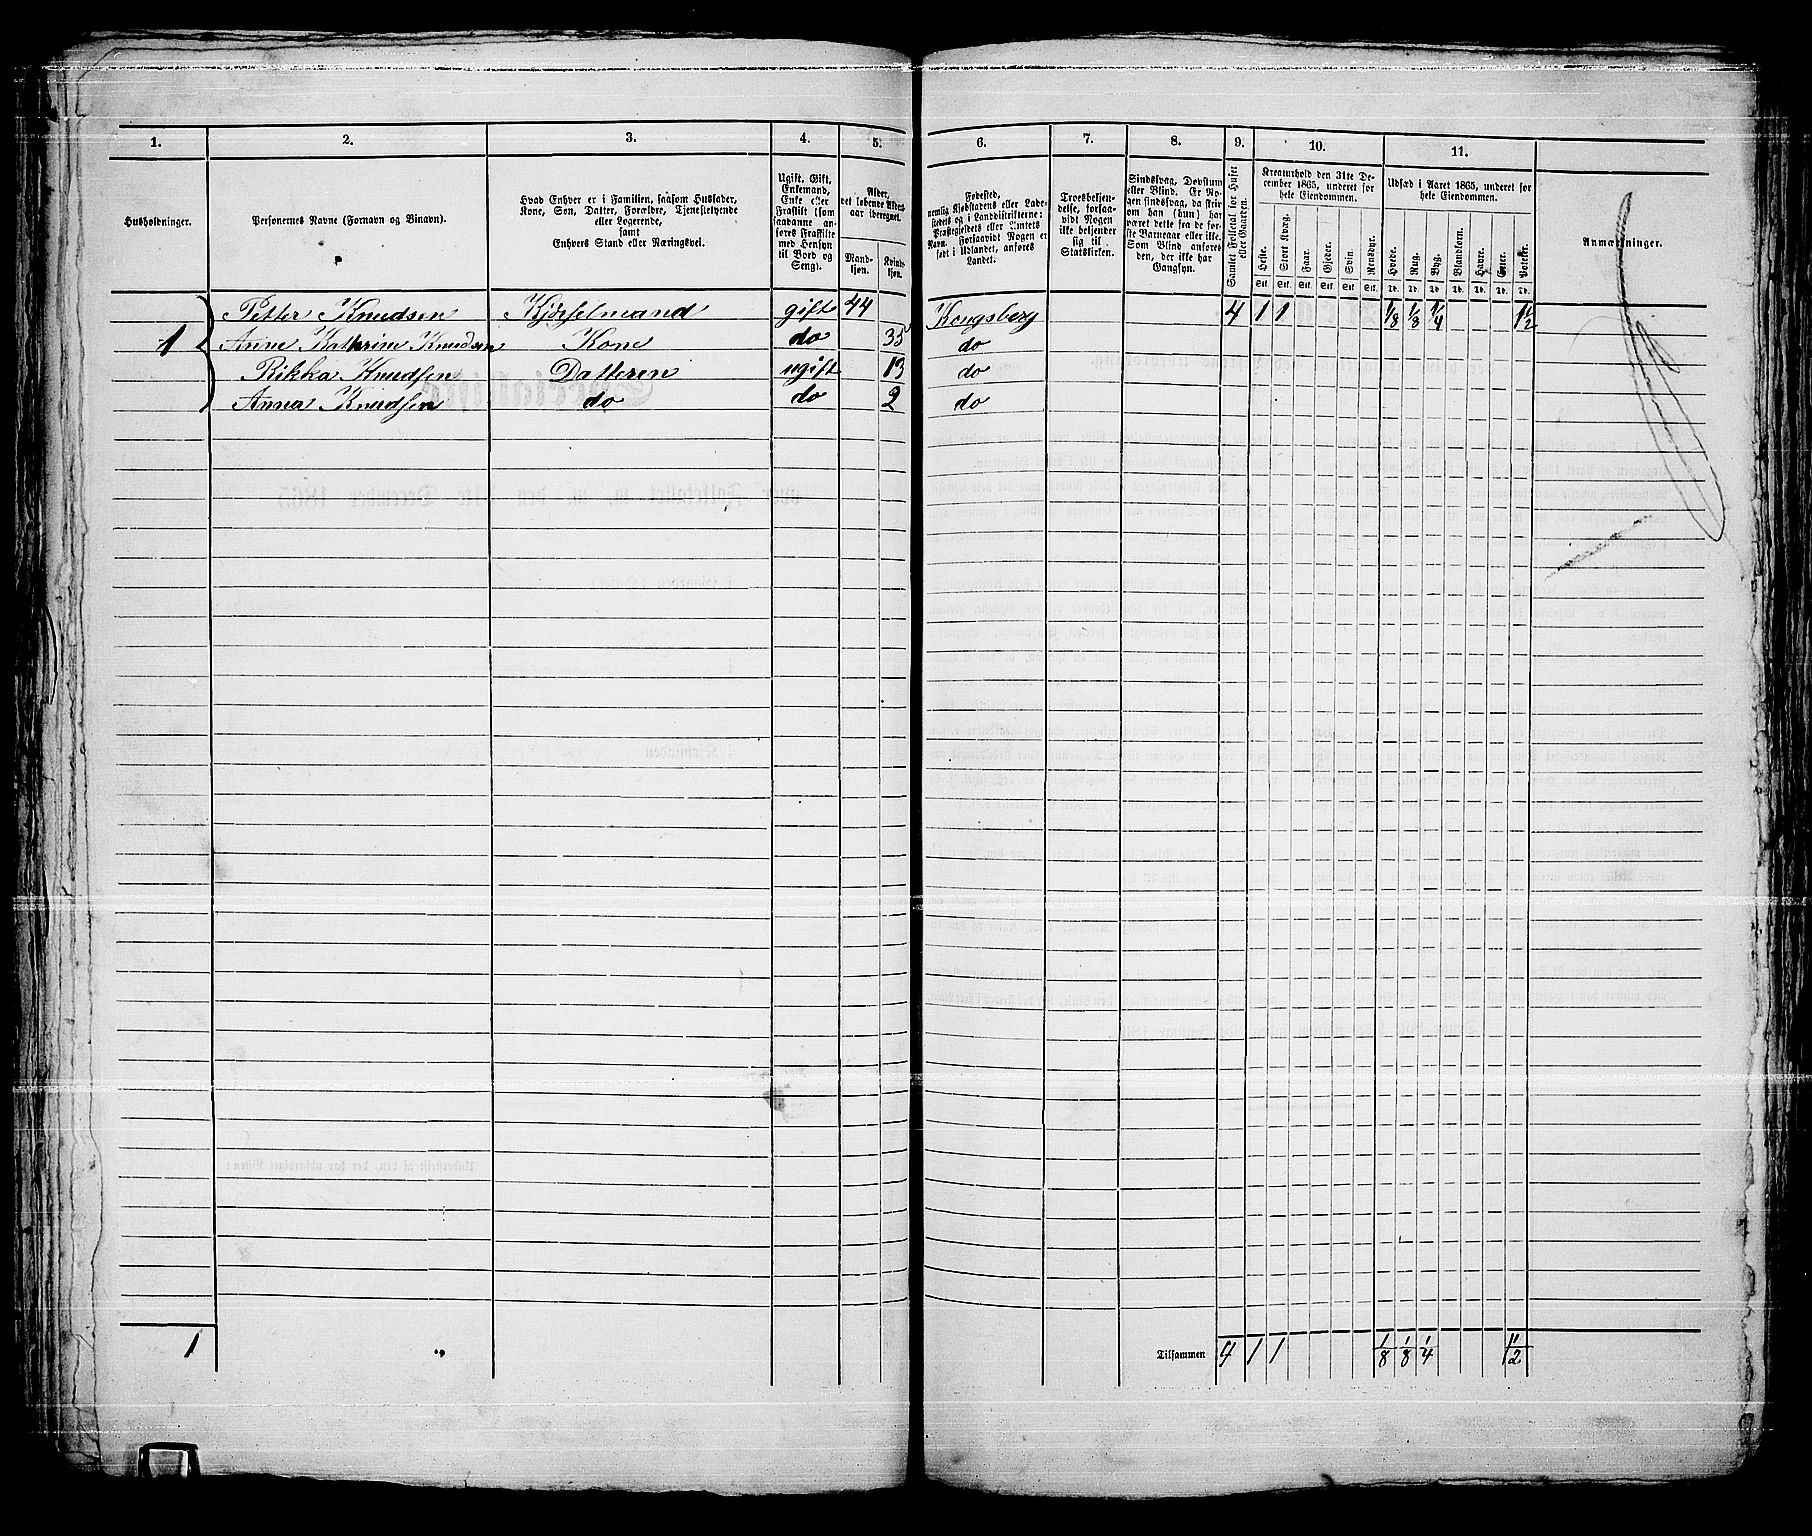 1. 2. 3. 4. 5. 6. 7. 8. 9. 10. 11.
Husholdninger.
Personernes Navne (Fornavn og Binavn).
Hvad Enhver er i Familien, saasom Husfader,
Kone, Søn, Datter, Forældre, Tjenestetyende
eller Logerende,
samt
Enhvers Stand eller Næringsvei.
Ugift, Gift,
Enkemand,
Enke eller
Fraskilt (som
saadanne an-
føres Fraskilte
med Hensyn
til Bord og
Seng).
Alder,
det løbende Alders-
aar iberegnet.
Mand-
kjøn.
Kvind-
kjøn.
Fødested,
nemlig Kjøbstadens eller Lade-
stedets og i Landdistrikterne:
Præstegjeldets eller Amtets
Navn. Forsaavidt Nogen er
født i Udlandet, anføres
Landet.
Troesbekjen-
delse, forsaa-
vidt Nogen
ikke bekjender
sig til
Statskirken.
Sindssvag, Døvstum
eller Blind. Er No-
gen sindssvag, da skriv
om han (hun) har
været dette fra de før-
ste Barneaar eller ikke.
Som Blind anføres
den, der ikke har
Gangsyn.
Samlet Folketal for Huset
eller Gaarden.
Kreaturhold den 31te De-
cember 1865, underet for
hele Eiendommen.
Heste. Stort Kvæg. Faar. Gjeder. Svin. Rensdyr.
Stk. Stk. Stk. Stk. Stk. Stk.
Udsæd i Aaret 1865, underet for
hele Eiendommen.
Hvede. Rug. Byg. Blandkorn. Havre. Erter. Poteter.
Td. Td. Td. Td. Td. Td. Td.
Anmærkninger.
Petter Knudsen Kjørselmand gift 44 Kongsberg 4 1 1 1/8 1/8 1/4 1 1/2
1 Anne Kathrine Knudsen Kone do 35 do
Rikka Knudsen Datteren ugift 13 do
Anna Knudsen do do 2 do
1 Tilsammen 4 1 1 1/8 1/8 1/4 1 1/2